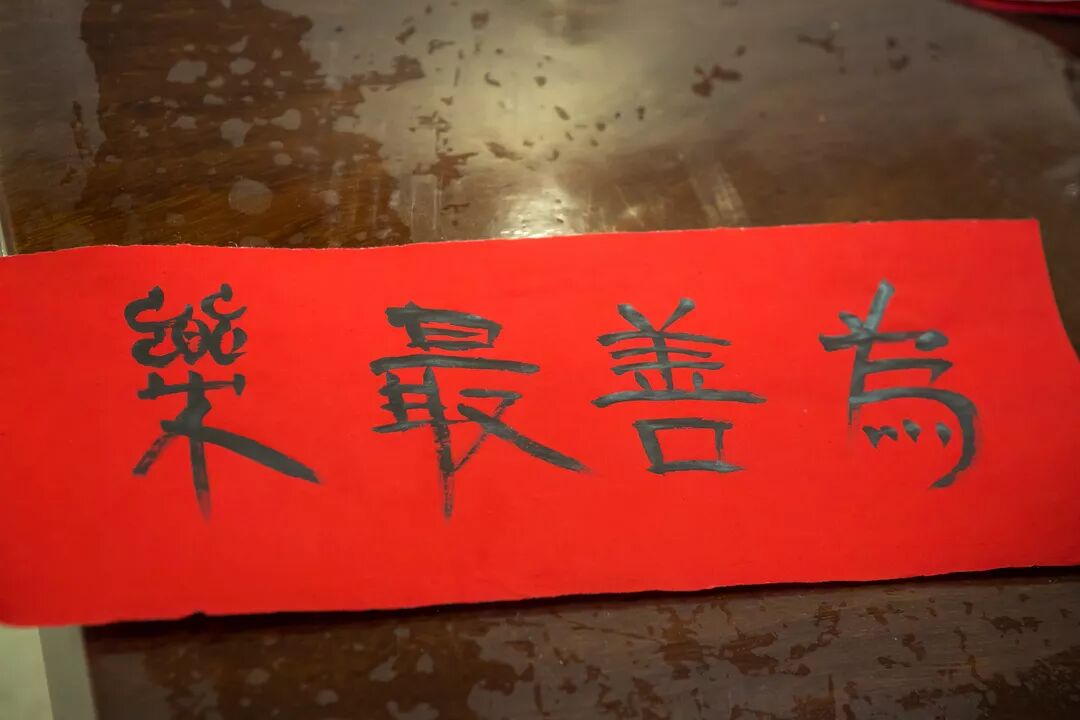 為善最樂